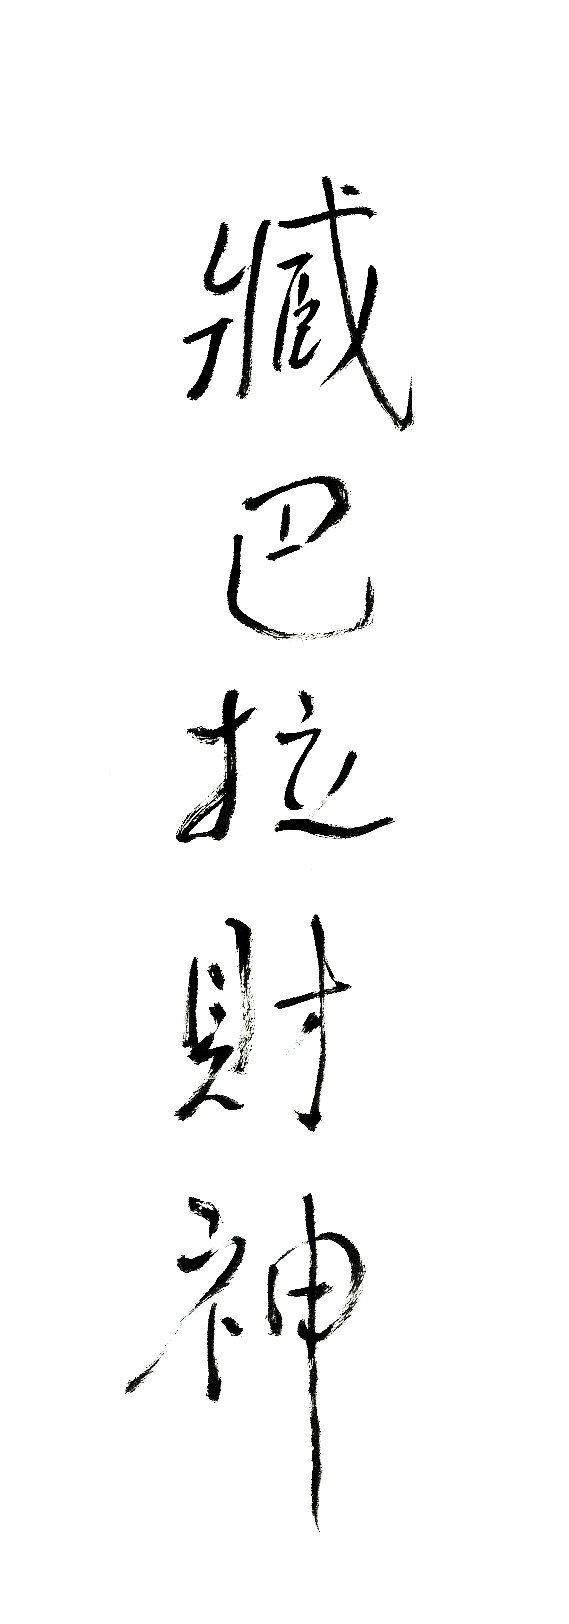 臧巴拉財神